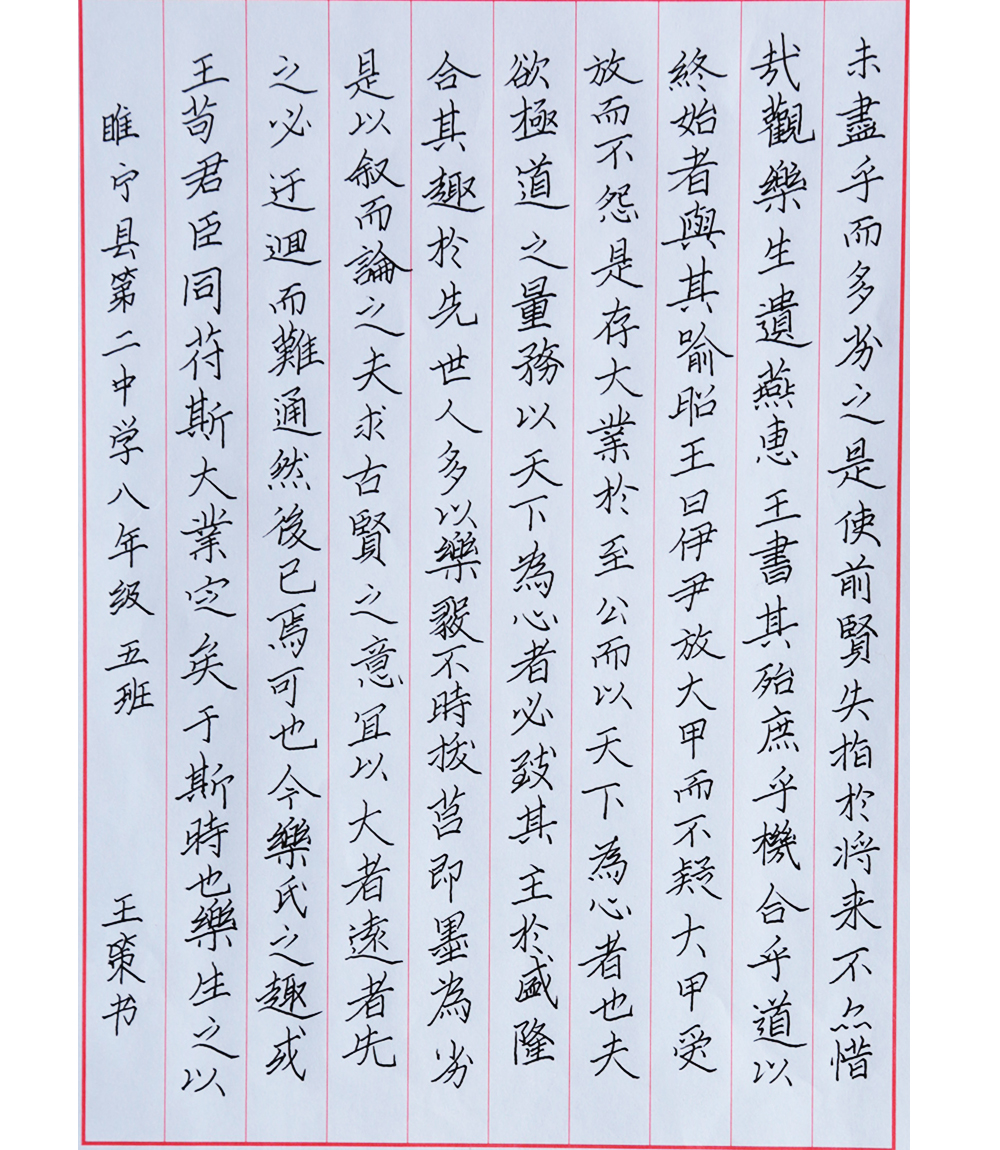 未盡乎而多劣之是使前賢失指於将来不亦惜
哉觀樂生遺燕惠王書其殆庶乎機合乎道以
終始者與其喻昭王曰伊尹放大甲而不疑大甲受
放而不怨是存大業於至公而以天下為心者也夫
欲極道之量務以天下為心者必致其主於盛隆
合其趣於先世人多以樂毅不時拔莒即墨為劣
是以叙而論之夫求古賢之意冝以大者遠者先
之必迂迴而難通然後已焉可也今樂氏之趣或
王苟君臣同苻斯大業定矣于斯時也樂生之以
睢宁县第二中学八年级五班 王策书